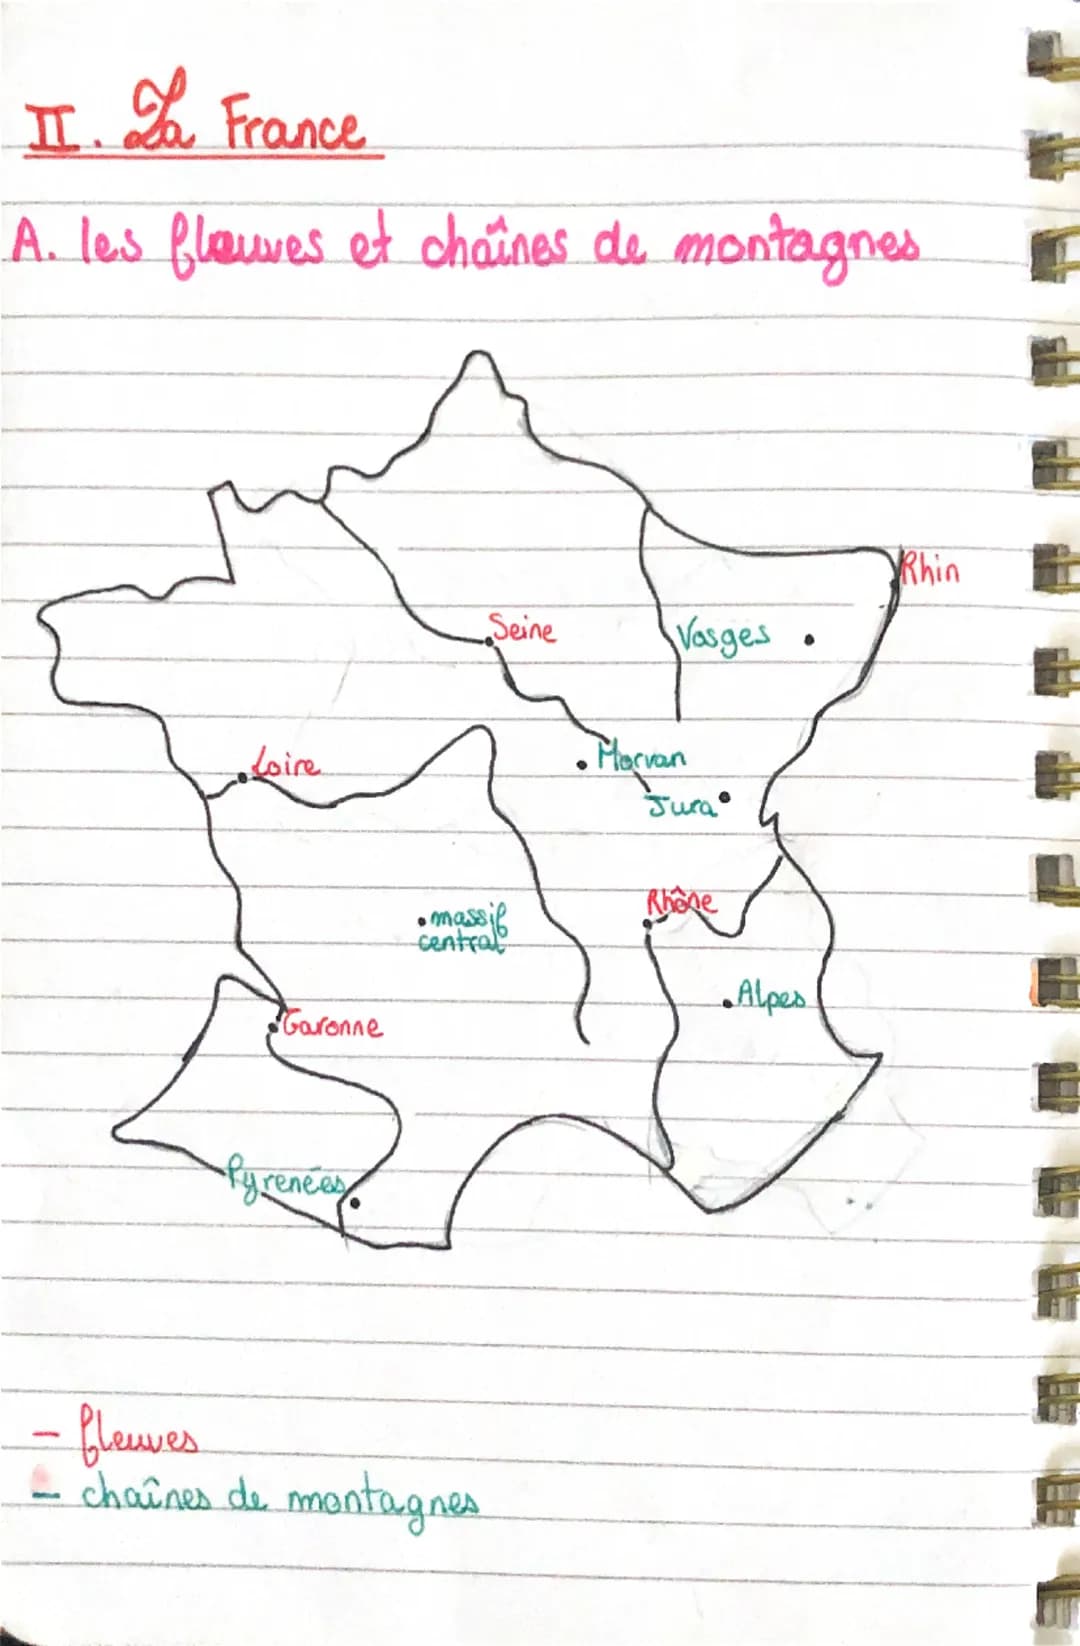 II. La France
A. les fleuves et chaînes de montagnes
Rhin
Seine
Vosges
Morvan
Loire
Jura
Rhône
massif
central
Alpes
Garonne
Pyrenées
- fleuves
- chaînes de montagnes